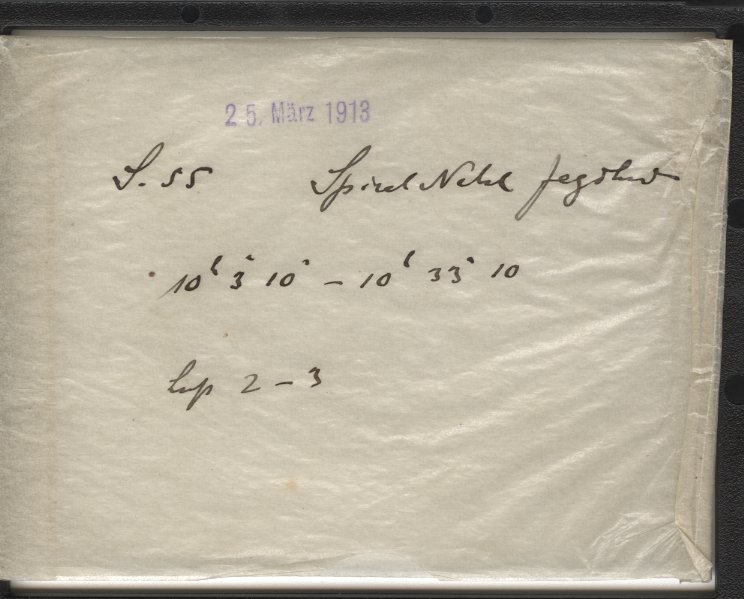 25. März 1913
S. 55 Spiral Nebel Jagdhund
10h 3m 10s – 10h 33m 10
2 – 3